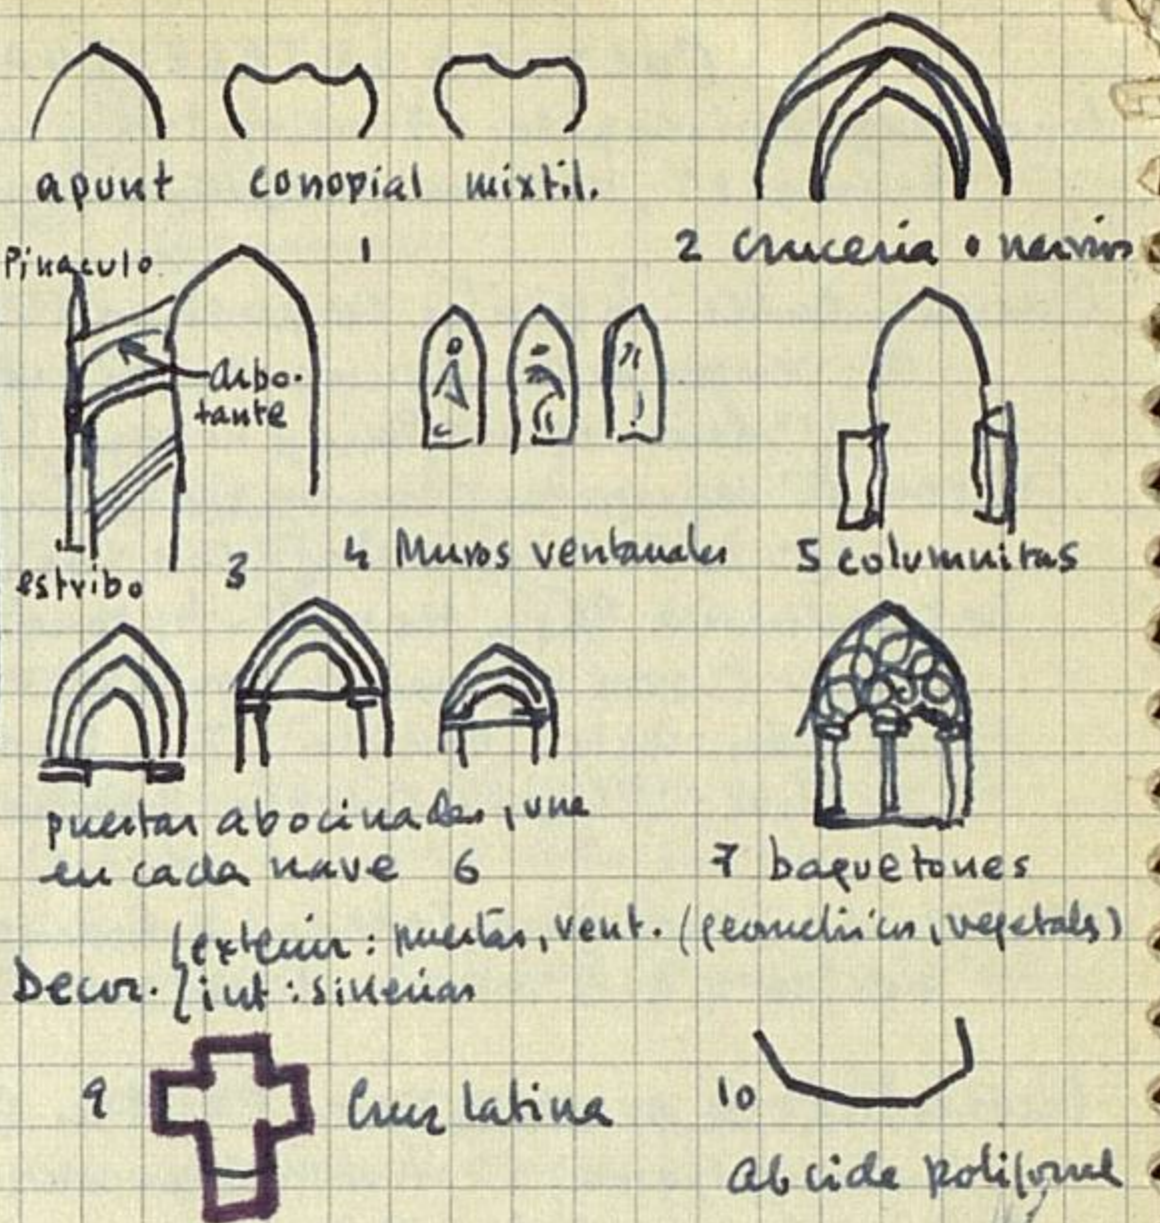 apunt conopial mixtil.
1
2 crucería o nervios
Pinaculo
Arbo-
tante
estribo 3
4 Muros ventanales
5 columnitas
puertas abocinadas, una
en cada nave 6
7 baquetones
Decor. exterior: puertas, vent. (geometricos, vegetals)
int: sillerias
9 Cruz latina
10
Abside poligonal